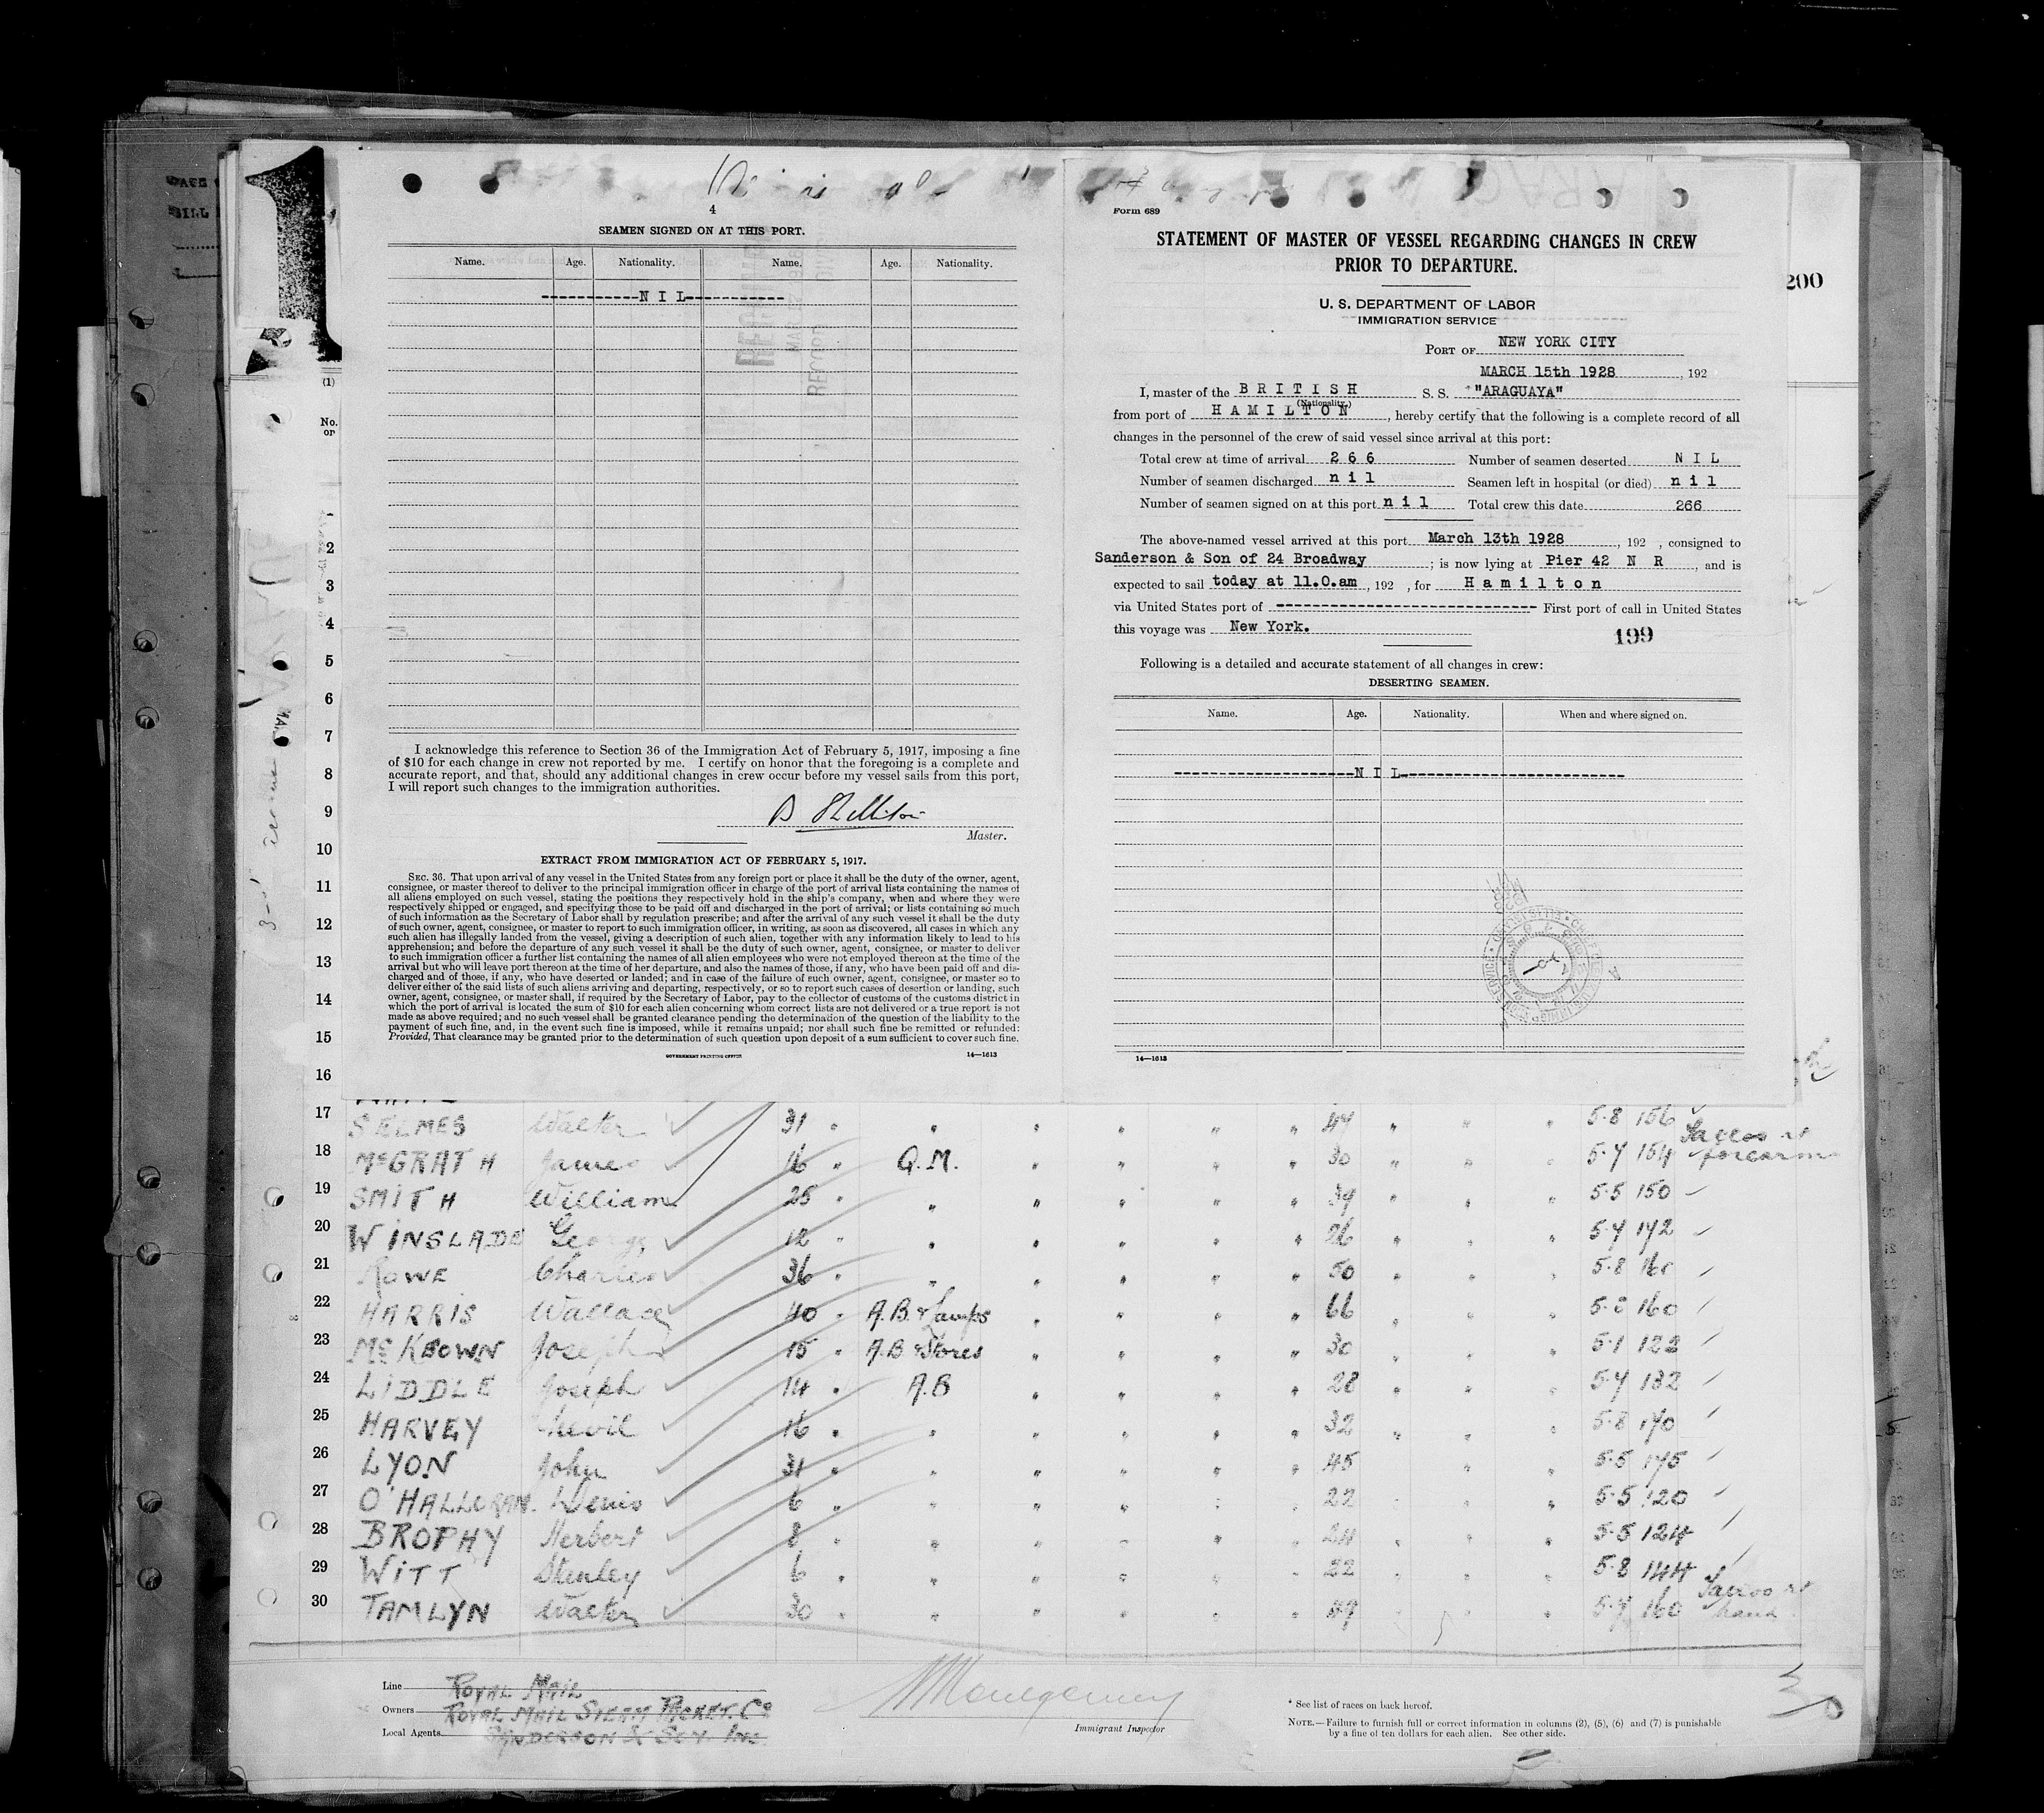 4
SEAMEN SIGNED ON AT THIS PORT.
Name. Age. Nationality. Name. Age. Nationality.
-----------N I L-----------
I acknowledge this reference to Section 36 of the Immigration Act of February 5, 1917, imposing a fine
of $10 for each change in crew not reported by me. I certify on honor that the foregoing is a complete and
accurate report, and that, should any additional changes in crew occur before my vessel sails from this port,
I will report such changes to the immigration authorities.
Master.
EXTRACT FROM IMMIGRATION ACT OF FEBRUARY 5, 1917.
SEC. 36. That upon arrival of any vessel in the United States from any foreign port or place it shall be the duty of the owner, agent,
consignee, or master thereof to deliver to the principal immigration officer in charge of the port of arrival lists containing the names of
all aliens employed on such vessel, stating the positions they respectively hold in the ship's company, when and where they were
respectively shipped or engaged, and specifying those to be paid off and discharged in the port of arrival; or lists containing so much
of such information as the Secretary of Labor shall by regulation prescribe; and after the arrival of any such vessel it shall be the duty
of such owner, agent, consignee, or master to report to such immigration officer, in writing, as soon as discovered, all cases in which any
such alien has illegally landed from the vessel, giving a description of such alien, together with any information likely to lead to his
apprehension; and before the departure of any such vessel it shall be the duty of such owner, agent, consignee, or master to deliver
to such immigration officer a further list containing the names of all alien employees who were not employed thereon at the time of the
arrival but who will leave port thereon at the time of her departure, and also the names of those, if any, who have been paid off and dis-
charged and of those, if any, who have deserted or landed; and in case of the failure of such owner, agent, consignee, or master so to
deliver either of the said lists of such aliens arriving and departing, respectively, or so to report such cases of desertion or landing, such
owner, agent, consignee, or master shall, if required by the Secretary of Labor, pay to the collector of customs of the customs district in
which the port of arrival is located the sum of $10 for each alien concerning whom correct lists are not delivered or a true report is not
made as above required; and no such vessel shall be granted clearance pending the determination of the question of the liability to the
payment of such fine, and, in the event such fine is imposed, while it remains unpaid; nor shall such fine be remitted or refunded:
Provided, That clearance may be granted prior to the determination of such question upon deposit of a sum sufficient to cover such fine.
GOVERNMENT PRINTING OFFICE 14—1613
Form 689
STATEMENT OF MASTER OF VESSEL REGARDING CHANGES IN CREW
PRIOR TO DEPARTURE.
U. S. DEPARTMENT OF LABOR
IMMIGRATION SERVICE
200
PORT OF NEW YORK CITY
MARCH 15th 1928, 192
I, master of the BRITISH S. S. "ARAGUAYA"
(Nationality.)
from port of HAMILTON, hereby certify that the following is a complete record of all
changes in the personnel of the crew of said vessel since arrival at this port:
Total crew at time of arrival 266 Number of seamen deserted NIL
Number of seamen discharged nil Seamen left in hospital (or died) nil
Number of seamen signed on at this port nil Total crew this date 266
The above-named vessel arrived at this port March 13th 1928, 192 , consigned to
Sanderson & Son of 24 Broadway ; is now lying at Pier 42 N R, and is
expected to sail today at 11.0.am, 192 , for Hamilton
via United States port of ------------------------------ First port of call in United States
this voyage was New York.
199
Following is a detailed and accurate statement of all changes in crew:
DESERTING SEAMEN.
Name. Age. Nationality. When and where signed on.
--------------------N I L------------------------
14—1613
(1)
No.
or
2
3
4
5
6
7
8
9
10
11
12
13
14
15
16
17 SELMES Walter 31 " " " " " " 47 " " " 5.8 156
18 McGRATH James 16 " Q.M. " " " " 30 " " " 5.7 154 Tattoo rt forearm
19 SMITH William 25 " " " " " " 39 " " " 5.5 150
20 WINSLADE George 12 " " " " " " 26 " " " 5.7 172
21 ROWE Charles 36 " " " " " " 50 " " " 5.8
22 HARRIS Wallace 40 " A.B. & Lamps " " " " 66 " " " 160
23 McKEOWN Joseph 15 " A.B & Stores " " " " 30 " " " 5.1 122
24 LIDDLE Joseph 14 " A.B " " " " 28 " " " 5.7 132
25 HARVEY 16 " " " " " " 32 " " " 5.8 170
26 LYON John 31 " " " " " " 45 " " 5.5 175
27 O'HALLORAN. Denis 6 " " " " " " 22 " " " 5.5 120
28 BROPHY Herbert 8 " " " " " " 24 " " " 5.5 124
29 WITT Stanley 6 " " " " " " 22 " " " 5.8 144
30 TAMLYN Walter 30 " " " " " " 49 " " 5.7 160 Tattoo rt hand
Line ROYAL MAIL
Owners ROYAL MAIL STEAM PACKET. Co
Local Agents SANDERSON & SON. INC.
Montgomery
Immigrant Inspector
* See list of races on back hereof.
NOTE.—Failure to furnish full or correct information in columns (2), (5), (6) and (7) is punishable
by a fine of ten dollars for each alien. See other side.
30